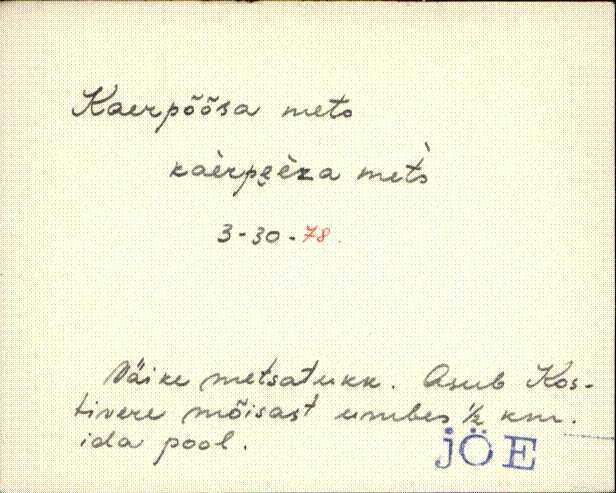 Kaerpõõsa mets
kaèrpe̮èza met̀s
3-30-78.
Väike metsatukk. Asub Kos-
tivere mõisast umbes ½ km.
ida pool.
JÖE